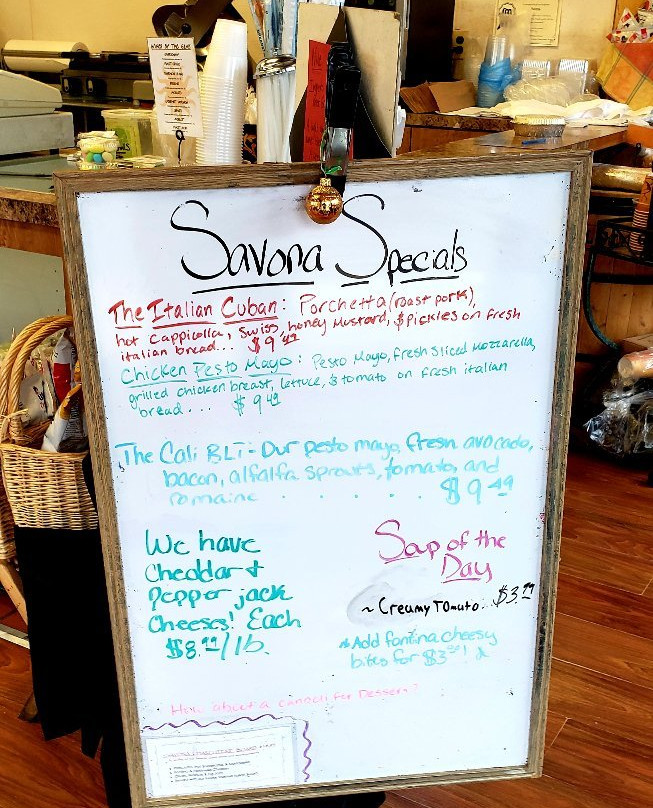 Savona Specials
The Italian Cuban: Porchetta (roast pork),
hot Cappicolla, Swiss, honey Mustard, & pickles on fresh
italian bread... $9.49
Chicken Pesto Mayo: Pesto Mayo, fresh sliced Mozzarella,
grilled chicken breast, lettuce, & tomato on fresh italian
bread... $9.49
The Cali BLT - Our pesto mayo, fresh avocado,
bacon, alfalfa sprouts, tomato, and
romaine . . . . . $9.49
We have
Cheddar +
Pepper jack
Cheeses! Each
$8.99/lb.
Soup of the
Day
~ Creamy Tomato.. $3.99
Add fontina cheesy
bites for $3
How about a Cannoli for Dessert?